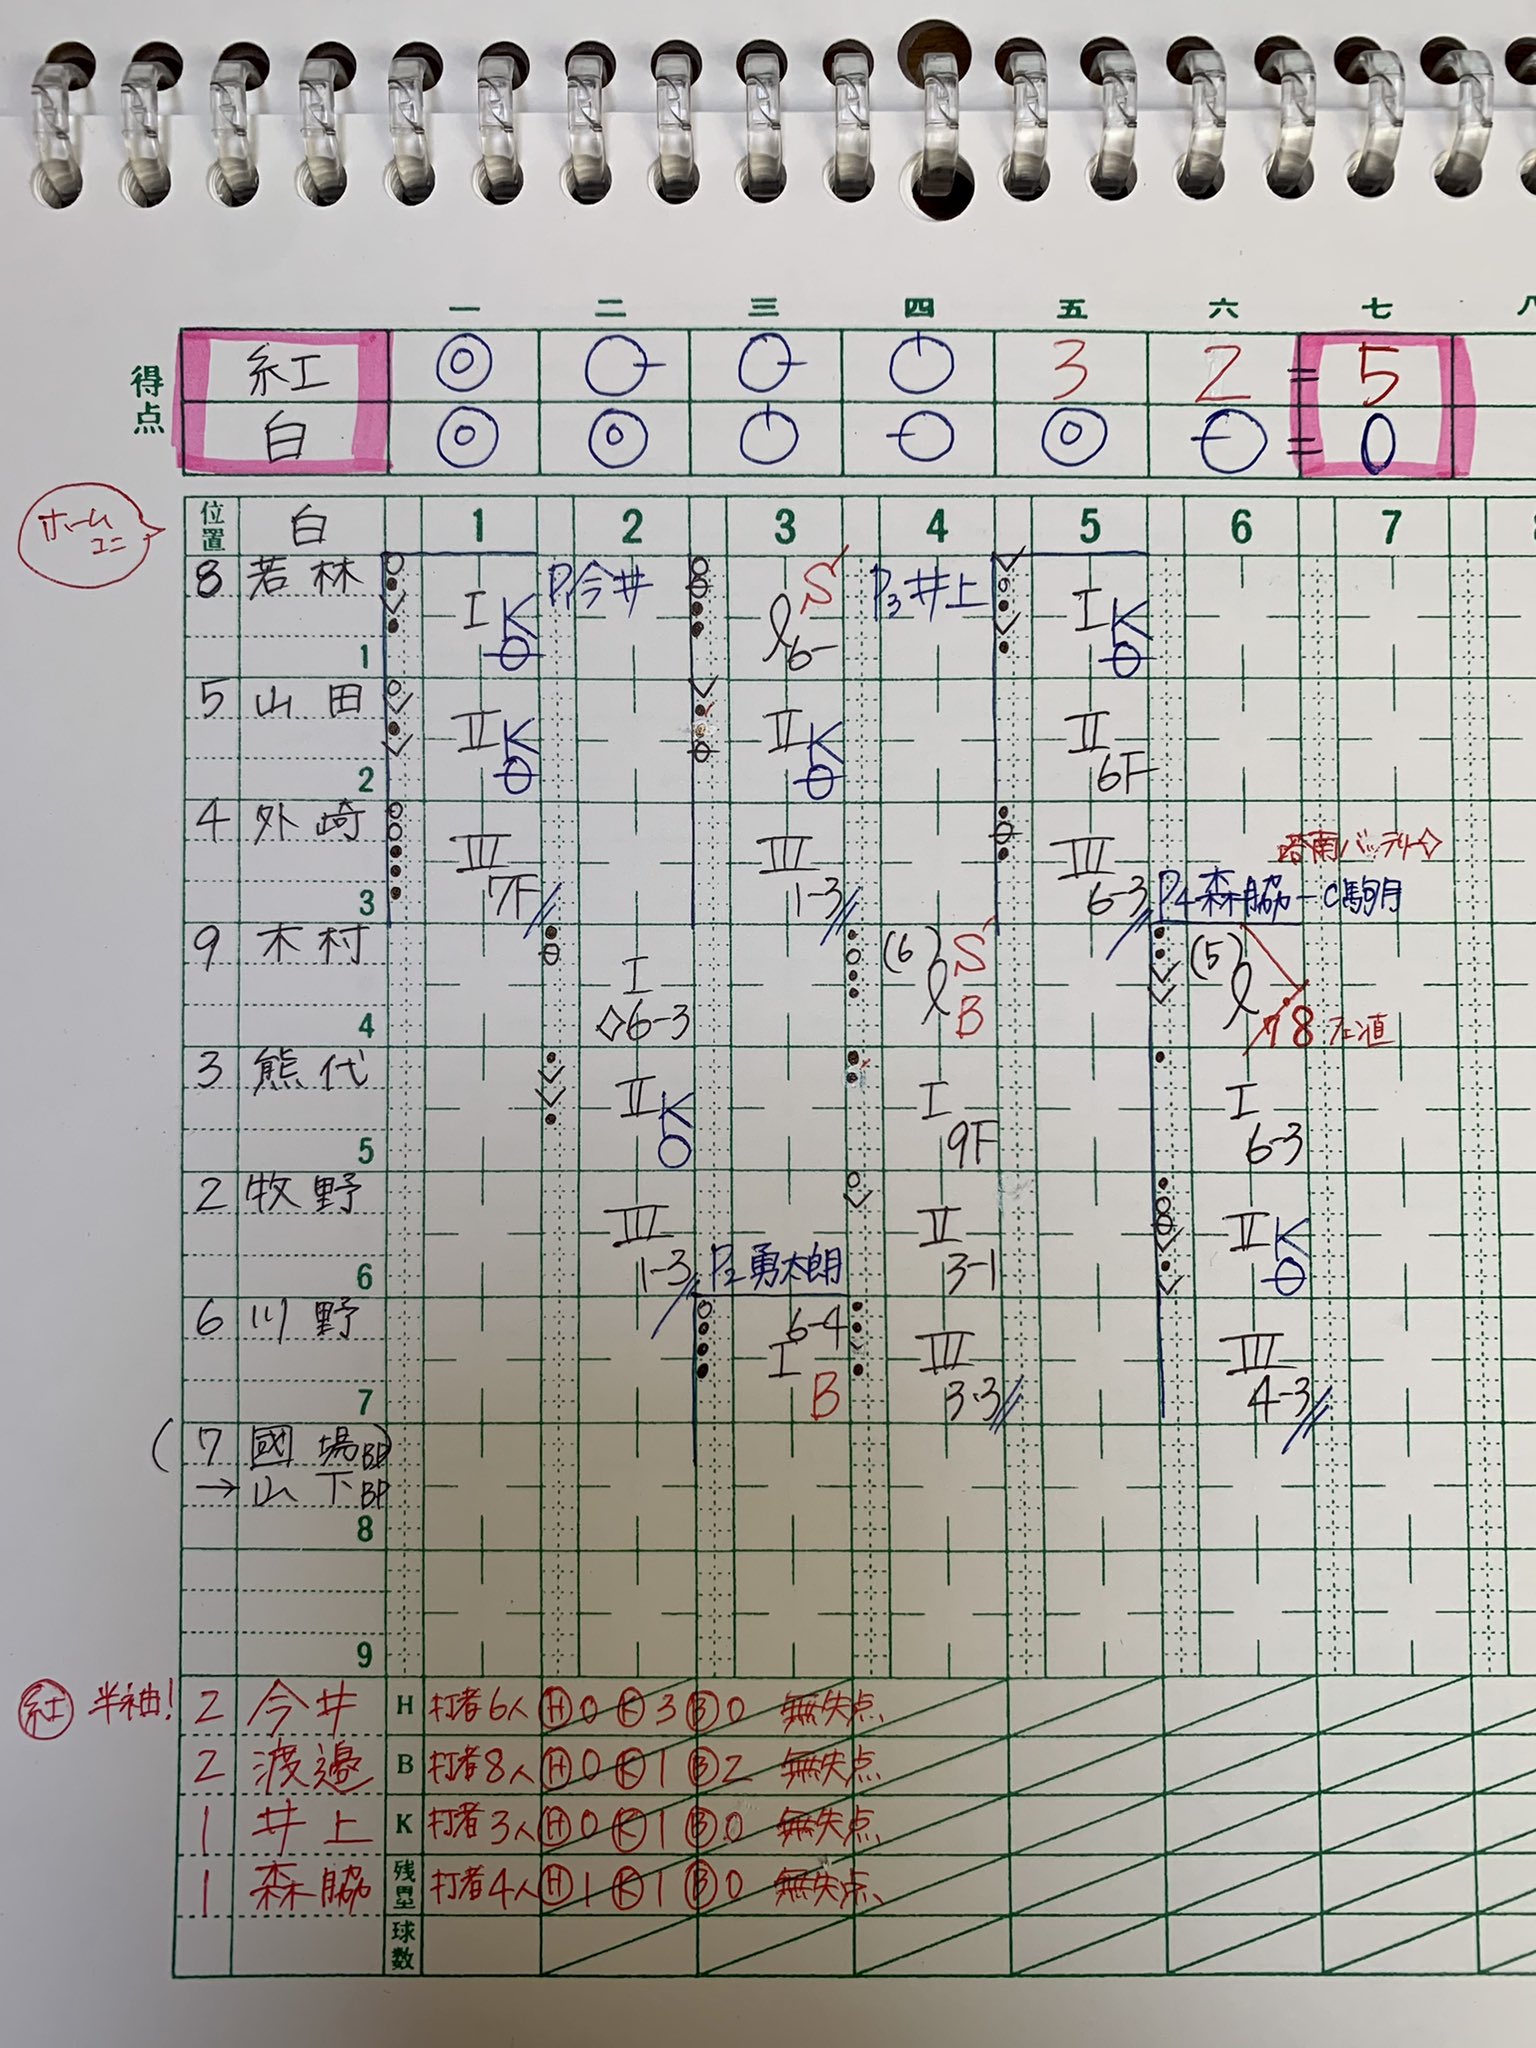 一 二 三 四 五 六 七 八
得点
紅 3 2 = 5
白 = 0
ホームユニ
位置 白 1 2 3 4 5 6 7
8 若林 1 I K P1今井 S 6- P3井上 I K
5 山田 2 II K II K II 6F
4 外崎 3 III 7F III 1-3 III 6-3
塔南バッテリー◇
P4森脇-C駒月
9 木村 4 I ◇6-3 (6) S B (5) 78 フェン直
3 熊代 5 II K I 9F I 6-3
2 牧野 6 III 1-3 P2勇太朗 II 3-1 II K
6 川野 7 6-4 I B III 3-3 III 4-3
(7 國場BP)
→山下BP
8
9
紅 半袖! 2 今井 H 打者6人 H0 K3 B0 無失点
2 渡邉 B 打者8人 H0 K1 B2 無失点
1 井上 K 打者3人 H0 K1 B0 無失点
1 森脇 残塁 打者4人 H1 K1 B0 無失点
球数